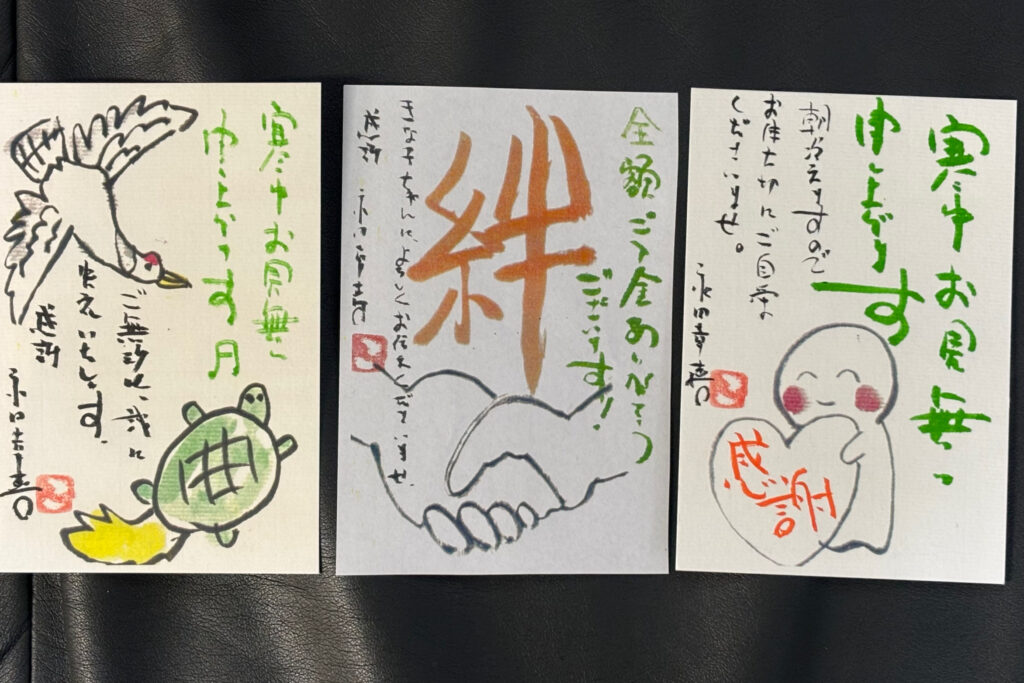 寒中お見舞い
申し上げます
ご無沙汰、誠に
失礼いたします。
感謝
全額ご入金ありがとう
ございます!
絆
きな子ちゃんに、よろしくお伝えくださいませ。
感謝
寒中お見舞い
申し上げます
朝冷えますので
お体大切にご自愛
くださいませ。
永田幸喜
感謝